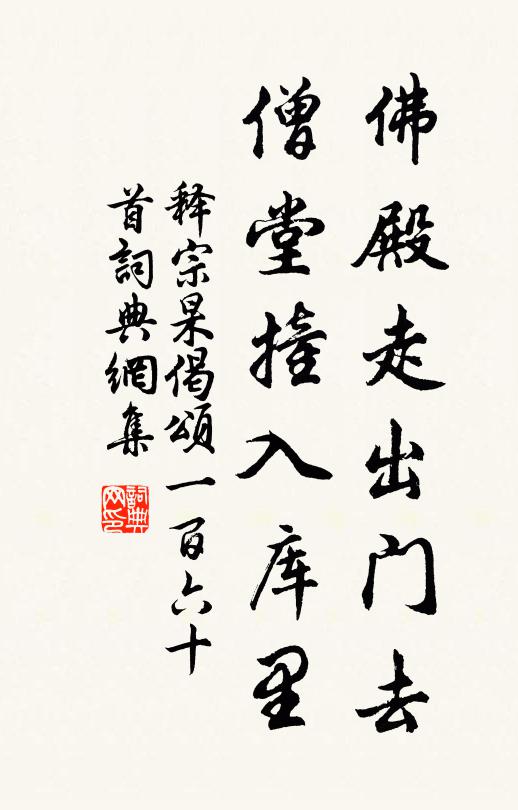 佛殿走出门去
僧堂撞入库里
释宗杲偈頌一百六十
首詞典網集
詞典
网印